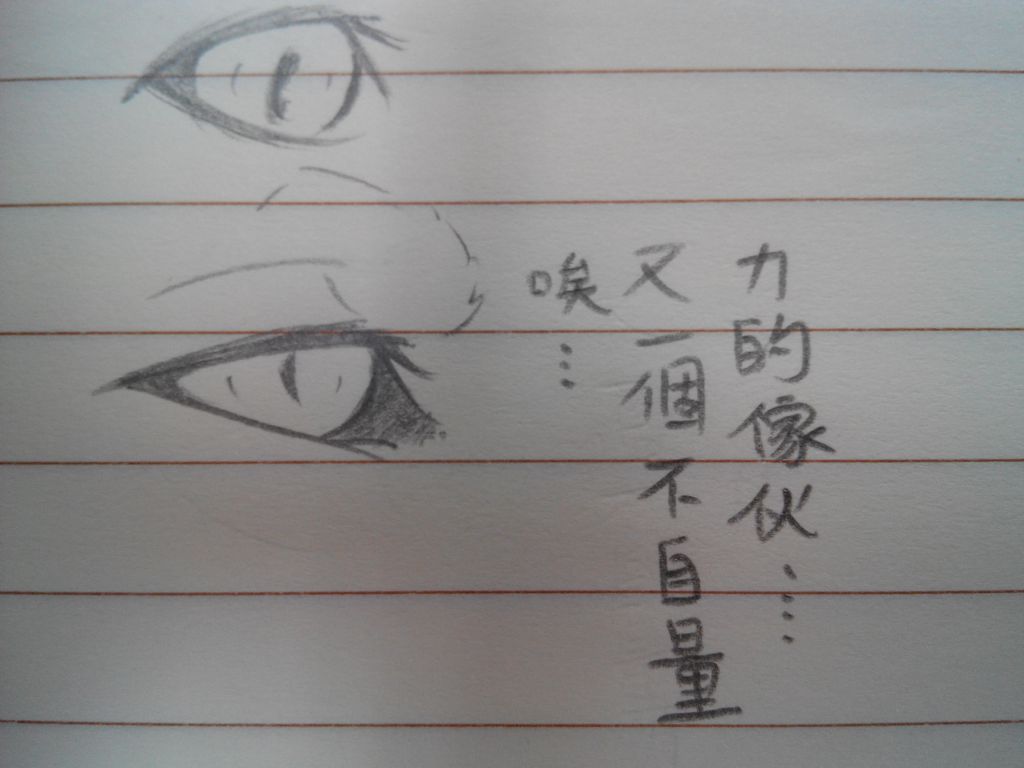 唉…
又一個不自量
力的傢伙…